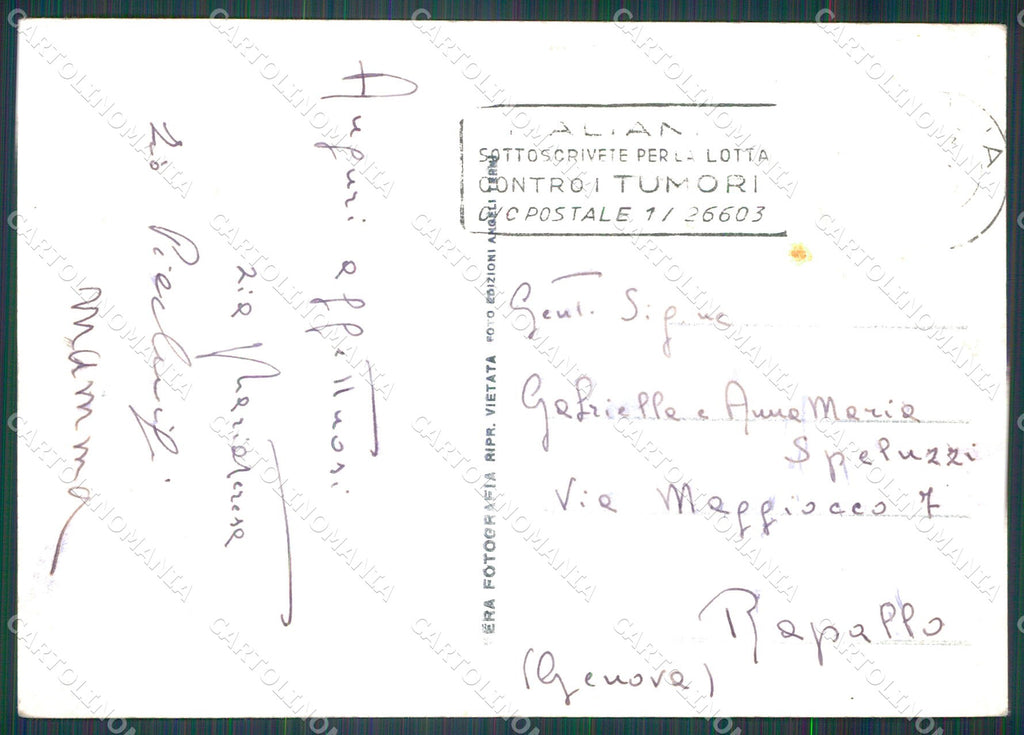 Auguri affettuosi
zia Mariateresa
Zio
mamma
ITALIANI
SOTTOSCRIVETE PER LA LOTTA
CONTRO I TUMORI
C/C POSTALE 1/26603
ERA FOTOGRAFIA RIPR. VIETATA FOTO EDIZIONI ANGELI TERNI
Gent. Sig.ne
Gabriella e Anna Maria
Speluzzi
Via Maggiocco 7
Rapallo
(Genova)
CARTOLINOMANIA